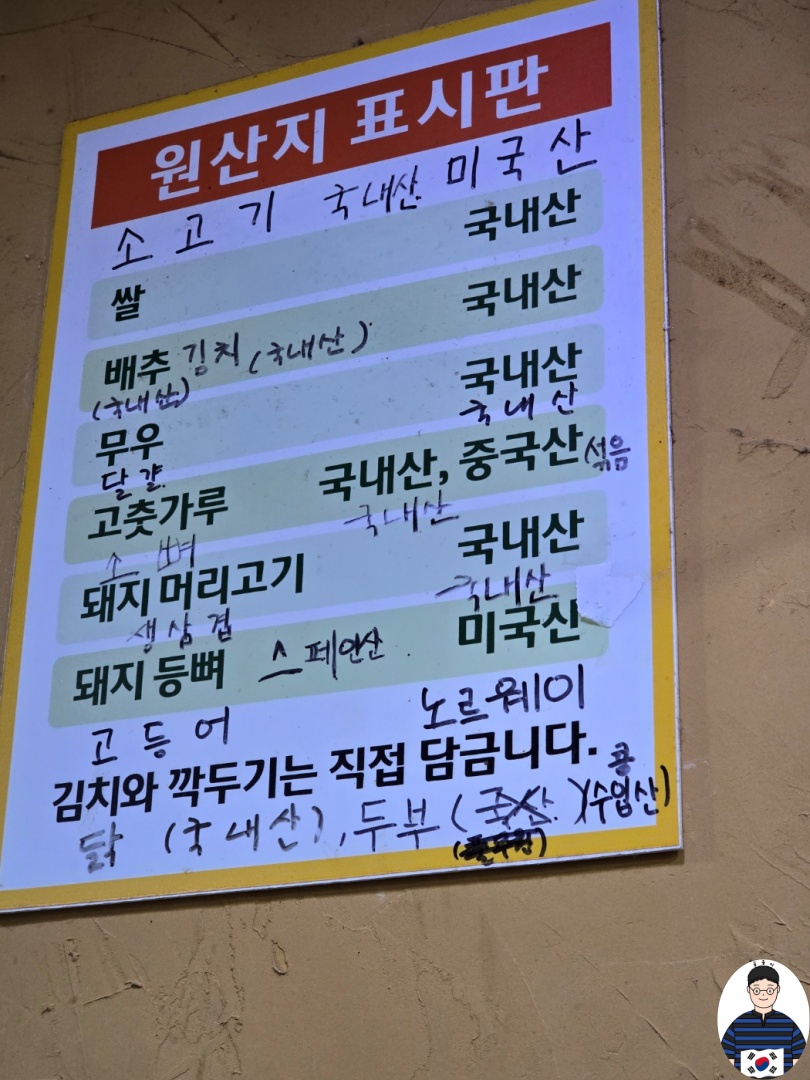 원산지 표시판
소고기 국내산 미국산
쌀 국내산
배추 김치 (국내산) 국내산
(국내산)
무우 국내산
달걀 국내산
고춧가루 국내산, 중국산 섞음
소뼈 국내산
돼지 머리고기 국내산
생삼겹 국내산
돼지 등뼈 스페인산 미국산
고등어 노르웨이
김치와 깍두기는 직접 담금니다.
콩
닭 (국내산), 두부 ( )(수입산)